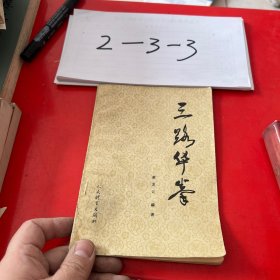 2-3-3
三路华拳
蔡龙云 编著
人民体育出版社